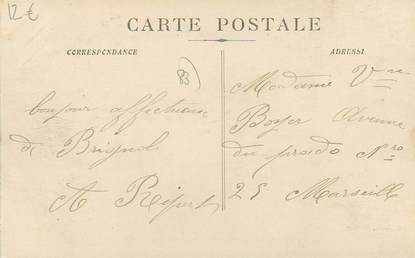 12€
CARTE POSTALE
CORRESPONDANCE
ADRESSE
83
bonjour affectueux
de Brignol
A Ripert
Madame Vve
Boyer Avenue
du prado Nro
25 Marseille